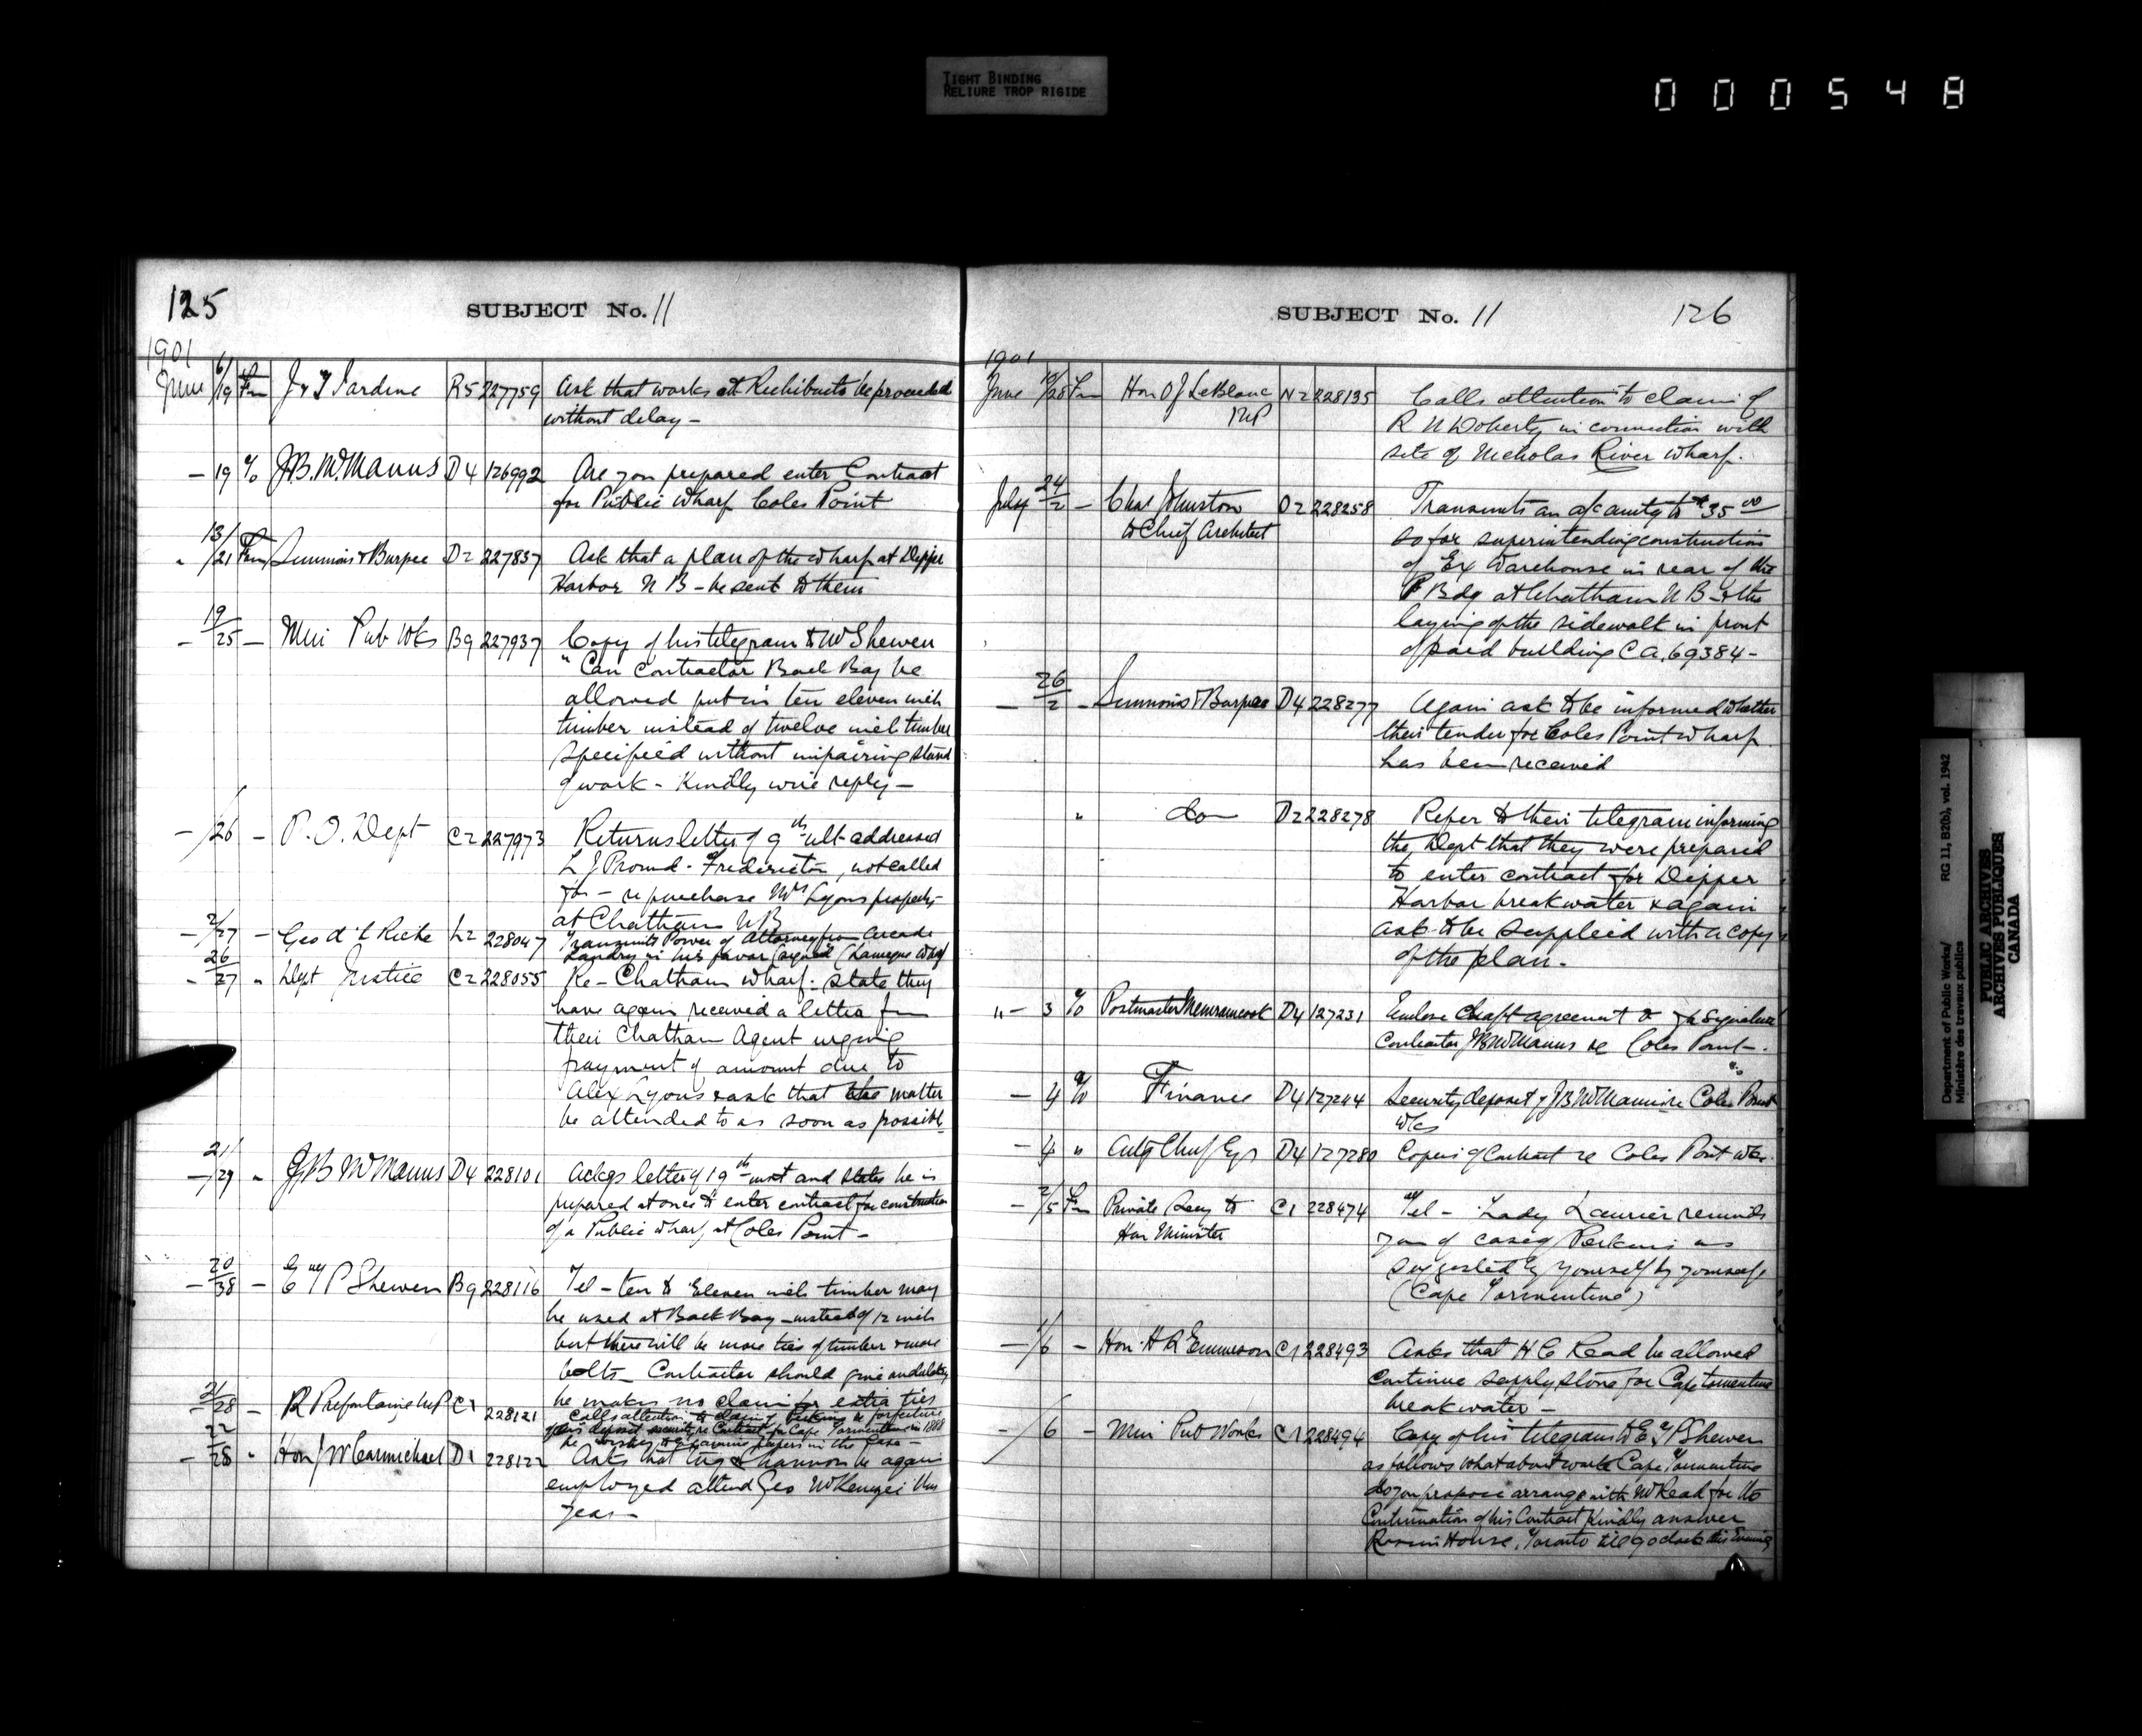 TIGHT BINDING
RELIURE TROP RIGIDE
000548
125
SUBJECT No. 11
1901
June 6/19 Fm J & T Jardine R5 227759 Ask that works at Richibucto be proceeded
without delay -
- 19 % J.B. McManus D4 126992 Are you prepared enter Contract
for Public Wharf Coles Point
" 13/21 Fm Simmons & Burpee D2 227837 Ask that a plan of the wharf at Dipper
Harbor N B - be sent to them
- 19/25 - Min Pub Wks B9 227937 Copy of his telegram to Mr Shewen
"Can Contractor Back Bay be
allowed put in ten eleven inch
timber instead of twelve inch timber
specified without impairing
of work - Kindly wire reply -
- /26 - P.O. Dept C2 227973 Returns letter of 9th ult addressed
L J Fredericton, not called
for - re purchase Mrs Lyons property
at Chatham N B
- 2/27 - Geo d L 228047 Transmits Power of Attorney from
Landry in his favor
- 26/27 " Dept Justice C2 228055 Re - Chatham Wharf: State they
have again received a letter fm
their Chatham Agent urging
payment of amount due to
Alex Lyons & ask that the matter
be attended to as soon as possible
- 21/29 " J B McManus D4 228101 Ackgs letter of 19th inst and states he is
prepared at once to enter contract for construction
of a Public Wharf at Coles Point -
- 20/38 - E T P Shewen B9 228116 Tel - ten to Eleven inch timber may
be used at Back Bay - instead of 12 inch
but there will be more ties of timber & more
bolts - Contractor should give
he makes no claim for extra ties
- 21/28 - R Prefontaine MP C1 228121 Calls attention to claim of Perkins re forfeiture
of his deposit security re Contract for Cape Tormentine in 1888
he wishes to examine papers in the Case -
- 22/28 " Hon J W Carmichael D1 228122 Asks that tug be again
employed attend Geo McKenzie this
year -
SUBJECT No. 11
126
1901
June /28 Fm Hon O J LeBlanc N2 228135 Calls attention to claim of
MP R N Doherty in connection with
site of Nicholas River wharf.
July 24/2 - Chas Johnston O2 228258 Transmits an a/c amtg to $35 00
to Chief Architect so for superintending construction
of Ex Warehouse in rear of the
P Bdg at Chatham N B & the
laying of the sidewalk in front
of said building C a, 69384 -
- 26/2 - Simmons & Burpee D4 228277 Again ask to be informed whether
their tender for Coles Point wharf
has been received
" do - D2 228278 Refer to their telegram informing
the Dept that they were prepared
to enter contract for Dipper
Harbor breakwater & again
ask to be supplied with a copy
of the plan.
" - 3 % Postmaster Memramcook D4 127231 Enclose Draft agreement for signature
Contractor J B McManus re Coles Point -
- 4 % Finance D4 127244 Security deposit of J B McManus re Coles Point
Wks
- 4 " Actg Chief Egr D4 127280 Copies of Contract re Coles Point wks.
- 2/5 Fm Private Secy to C1 228474 Tel - Lady Laurier reminds
Hon Minister you of case of Perkins as
suggested by yourself by yourself
(Cape Tormentine)
- 1/6 - Hon. H R Emmerson C1 228493 Asks that H C Read be allowed
continue supply stone for Cape Tormentine
breakwater -
- /6 - Min Pub Works C1 228494 Copy of his telegram to E T P Shewen
as follows What about work Cape Tormentine
do you propose arrange with Mr Read for the
Continuation of his Contract Kindly answer
Rossin House, Toronto till 9 o clock this Evening
Department of Public Works/ RG 11, B2(b), vol. 1942
Ministère des travaux publics
PUBLIC ARCHIVES
ARCHIVES PUBLIQUES
CANADA